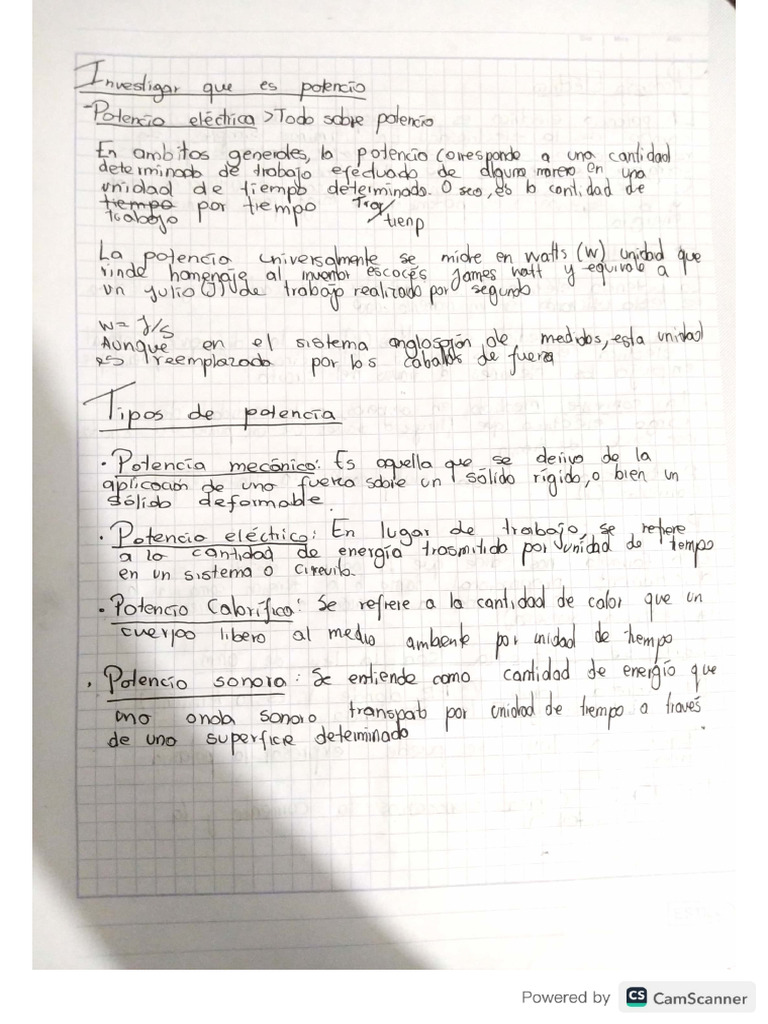 Investigar que es potencia
-Potencia eléctrica > Todo sobre potencia
En ambitos generales, la potencia corresponde a una cantidad
determinada de trabajo efectuado de alguna manera en una
unidad de tiempo determinado. O sea, es la cantidad de
tiempo por tiempo Traj/tiemp
trabajo
La potencia universalmente se mide en watts (W) unidad que
rinde homenaje al inventor escocés James Watt y equivale a
un julio (J) de trabajo realizado por segundo
W= J/s
Aunque en el sistema anglosajón de medidas, esta unidad
es reemplazada por los caballos de fuerza
Tipos de potencia
· Potencia mecánica: Es aquella que se deriva de la
aplicación de una fuerza sobre un sólido rígido, o bien un
sólido deformable.
· Potencia eléctrica: En lugar de trabajo, se refiere
a la cantidad de energía trasmitida por unidad de tiempo
en un sistema o circuito.
· Potencia Calorífica: Se refiere a la cantidad de calor que un
cuerpo libera al medio ambiente por unidad de tiempo
· Potencia sonora: Se entiende como cantidad de energía que
una onda sonora por unidad de tiempo a través
de una superficie determinada
Powered by CS CamScanner